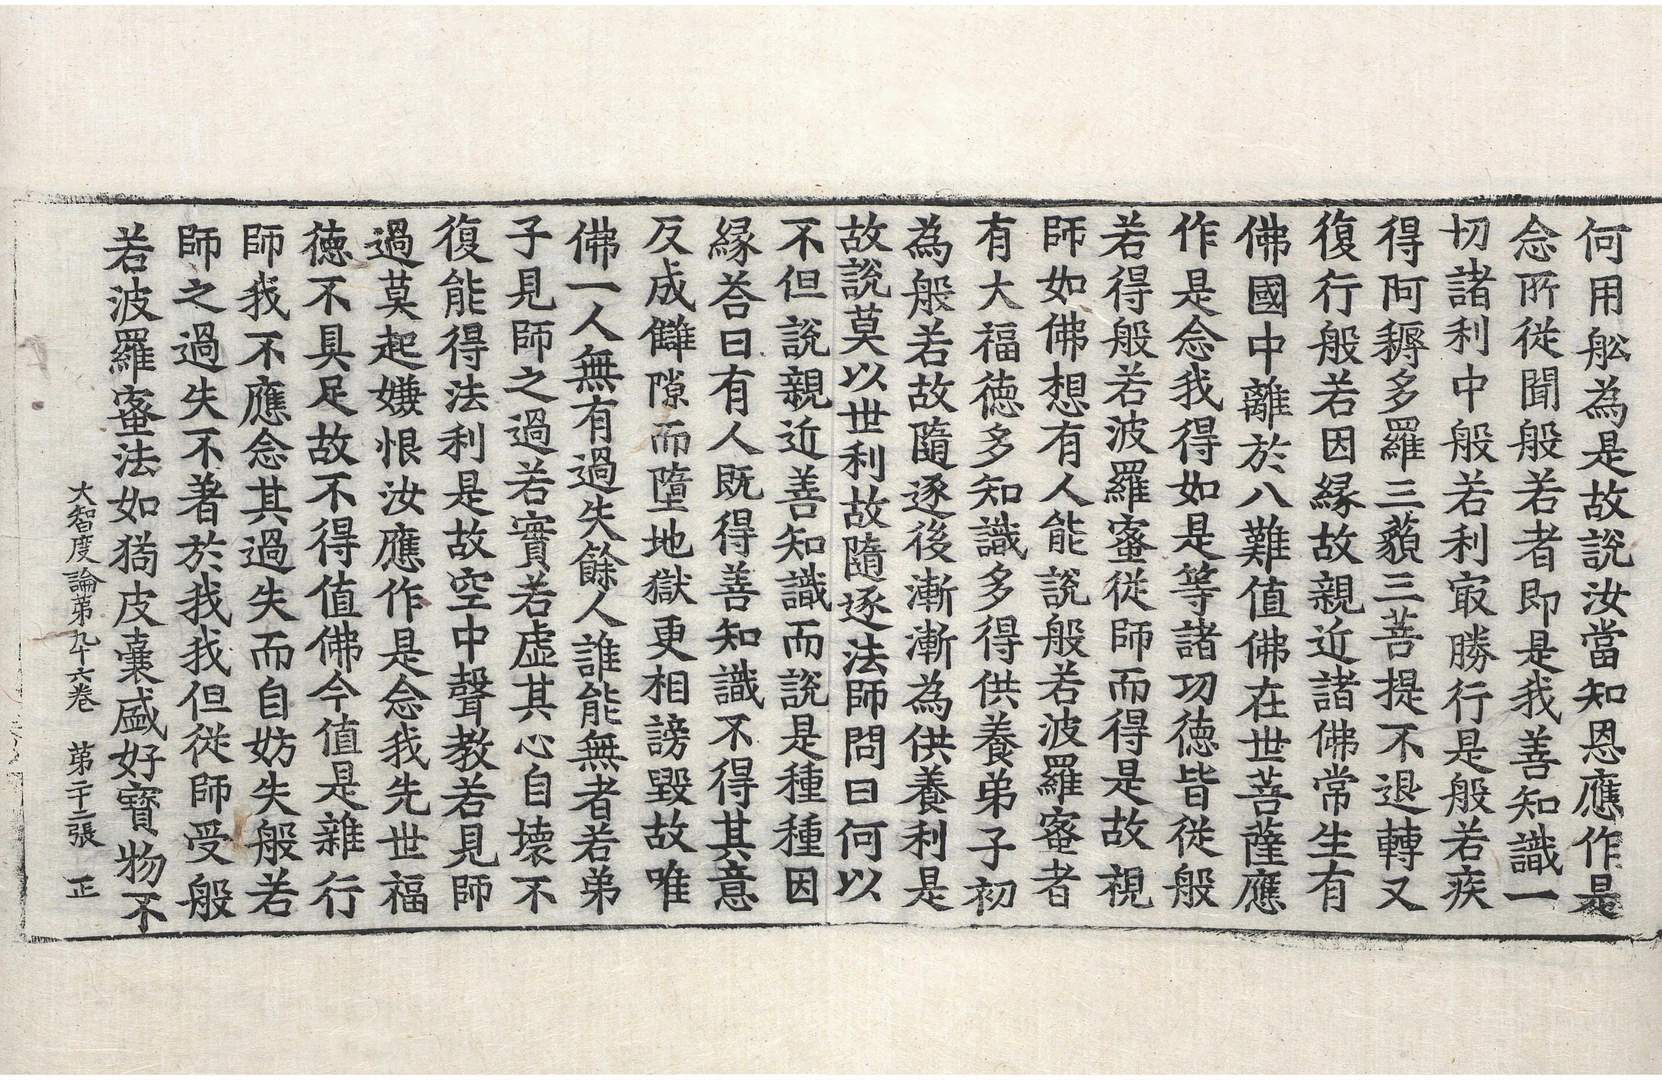 何用舩為是故說汝當知恩應作是
念所從聞般若者即是我善知識一
切諸利中般若利㝡勝行是般若疾
得阿耨多羅三藐三菩提不退轉又
復行般若因緣故親近諸佛常生有
佛國中離於八難值佛在世菩薩應
作是念我得如是等諸功德皆從般
若得般若波羅蜜從師而得是故視
師如佛想有人能說般若波羅蜜者
有大福德多知識多得供養弟子初
為般若故隨逐後漸漸為供養利是
故說莫以世利故隨逐法師問曰何以
不但說親近善知識而說是種種因
緣荅曰有人既得善知識不得其意
反成讎隙而墮地獄更相謗毀故唯
佛一人無有過失餘人誰能無者若弟
子見師之過若實若虛其心自壞不
復能得法利是故空中聲教若見師
過莫起嫌恨汝應作是念我先世福
德不具足故不得值佛今值是雜行
師我不應念其過失而自妨失般若
師之過失不著於我我但從師受般
若波羅蜜法如狗皮囊盛好寶物不
大智度論第九十六卷 第二十二張 正